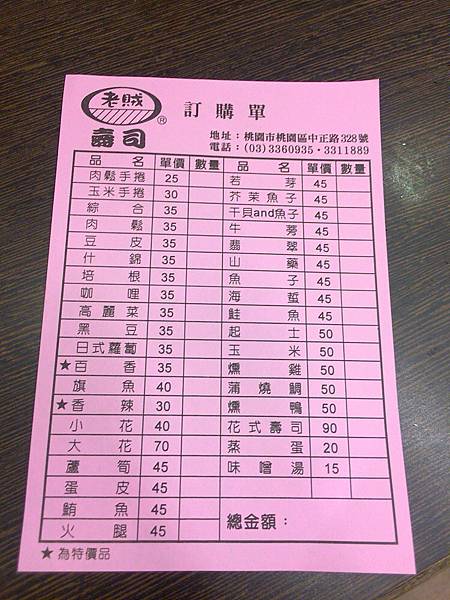 老賊
®
壽司
訂購單
地址：桃園市桃園區中正路328號
電話：(03)3360935・3311889
品名 單價 數量 品名 單價 數量
肉鬆手捲 25 若芽 45
玉米手捲 30 芥茉魚子 45
綜合 35 干貝and魚子 45
肉鬆 35 牛蒡 45
豆皮 35 翡翠 45
什錦 35 山藥 45
培根 35 魚子 45
咖哩 35 海蜇 45
高麗菜 35 鮭魚 45
黑豆 35 起士 50
日式蘿蔔 35 玉米 50
★百香 35 燻雞 50
旗魚 40 蒲燒鯛 50
★香辣 30 燻鴨 50
小花 40 花式壽司 90
大花 70 蒸蛋 20
蘆筍 45 味噌湯 15
蛋皮 45
鮪魚 45 總金額：
火腿 45
★為特價品